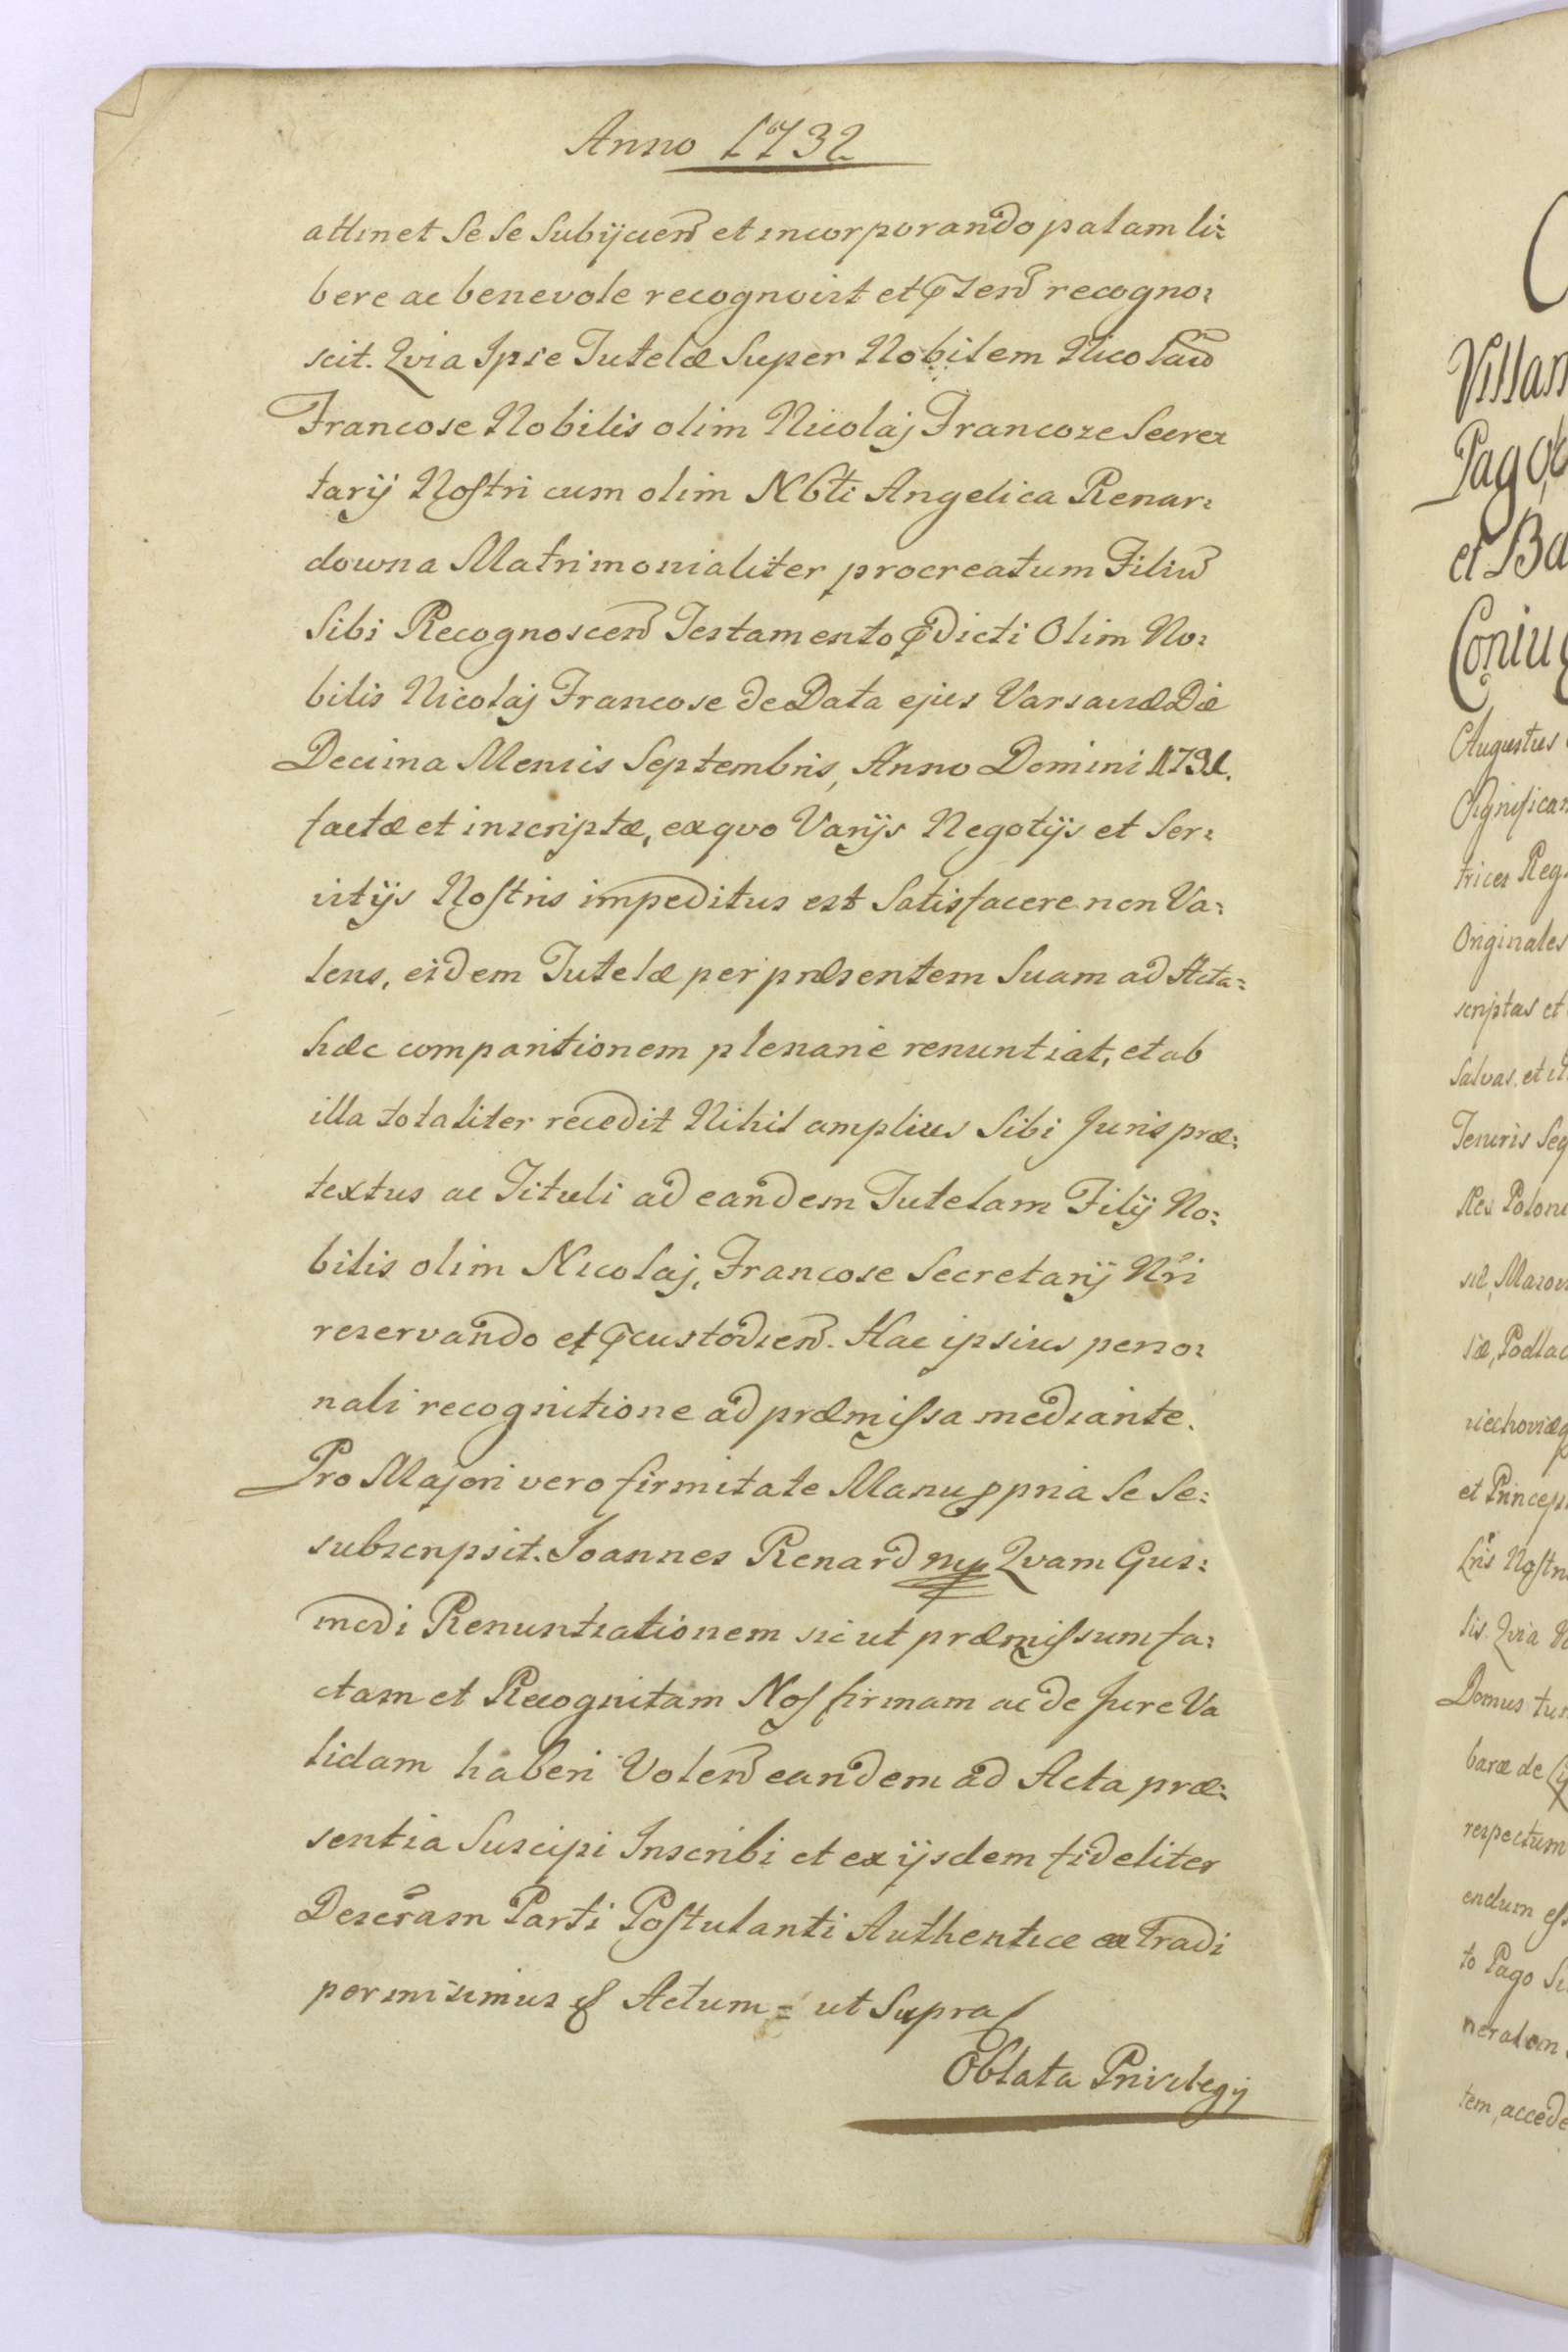 Anno 1732
attinet Se Se Subijcien̄d et incorporando palam li:
bere ac benevole recognovit et p̱sen̄d recogno:
scit. Qvia Ipse Tutelæ Super Nobilem Nicolaū
Francose Nobilis olim Nicolaj Francoze Secre:
tarij Nostri cum olim Nbli Angelica Renar:
downa Matrimonialiter procreatum Filiū
Sibi Recognoscen̄d Testamento p̱dicti Olim No:
bilis Nicolaj Francose de Data ejus Varsaviæ Die
Decima Mensis Septembris, Anno Domini 1731.
factæ et inscriptæ, ex qvo Varijs Negotijs et Ser:
vitijs Nostris impeditus est Satisfacere non Va:
lens, eidem Tutelæ per præsentem Suam ad Acta:
hæc comparitionem plenarie renuntiat, et ab
illa totaliter recedit Nihil amplius Sibi Juris præ:
textus ac Tituli ad eandem Tutelam Filij No:
bilis olim Nicolaj, Francose Secretarij Nr̄i
reservando et p̱custodien̄d. Hac ipsius perso:
nali recognitione ad præmissa mediante.
Pro Majori vero firmitate Manu ppria Se Se:
subscripsit. Joannes Renard mp Qvam Gus:
modi Renuntiationem sicut præmissum fa:
ctam et Recognitam Nos firmam ac de Jure Va
lidam haberi Volen̄d eandem ad Acta præ:
sentia Suscipi Inscribi et ex ijsdem fideliter
Descr̄am Parti Postulanti Authentice extradi
permisimus & Actum = ut Supra
Oblata Privilegij
C
Villam
Pago
et Ba
Coniug
Augustus
Significam
trices Reg
Originales
scriptas et
Salvas et
Tenoris Seq
Rex Poloni
siæ, Mazov
siæ, Podlac
niechoviæq
et Princeps
Lr̄is Nostri
lis. Qvia
Domus
baræ de
respectum
endum ess
to Pago
neralem
tem, accede